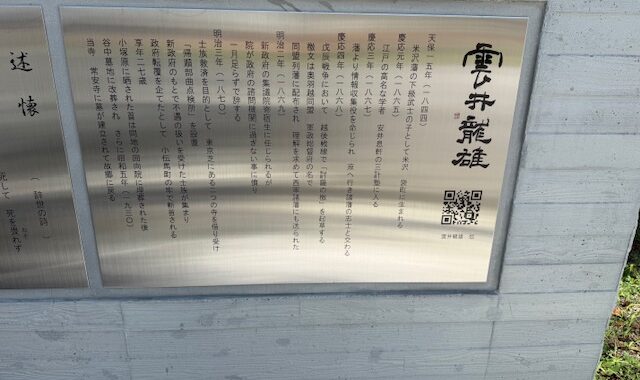 雲井龍雄
天保一五年（一八四四）
米沢藩の下級武士の子として米沢 袋町に生まれる
慶応元年（一八六五）
江戸の高名な学者 安井息軒の三計塾に入る
慶応三年（一八六七）
藩より情報収集役を命じられ 京へ行き諸藩の志士と交わる
慶応四年（一八六八）
戊辰戦争において 越後戦線で「討薩の檄」を起草する
檄文は奥羽越同盟 軍政総督府の名で
同盟列藩に配布され 理解を求めて西国諸藩にも送られた
明治二年（一八六九）
新政府の集議院寄宿生に任じられるが
院が政府の諮問機関に過ぎない事に憤り
一月足らずで辞する
明治三年（一八七〇）
士族救済を目的として 東京芝にある二つの寺を借り受け
「帰順部曲点検所」を設置
新政府のもとで不遇の扱いを受けた士族が集まり
政府転覆を企てたとして 小伝馬町の牢で斬首される
享年二七歳
小塚原に晒された首は同地の回向院に埋葬された後
谷中墓地に改葬され さらに昭和五年（一九三〇）
当寺 常安寺に墓が建立されて故郷に戻る
雲井龍雄
述懐
（辞世の詩）
死して 死を畏れず